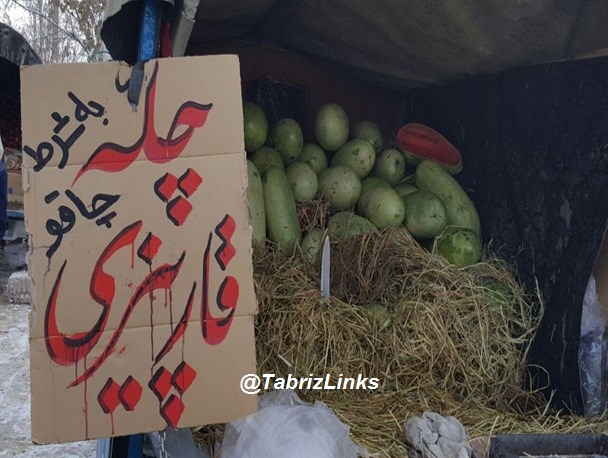 چلّه
قارپیزی
به شرط
چاقو
@TabrizLinks